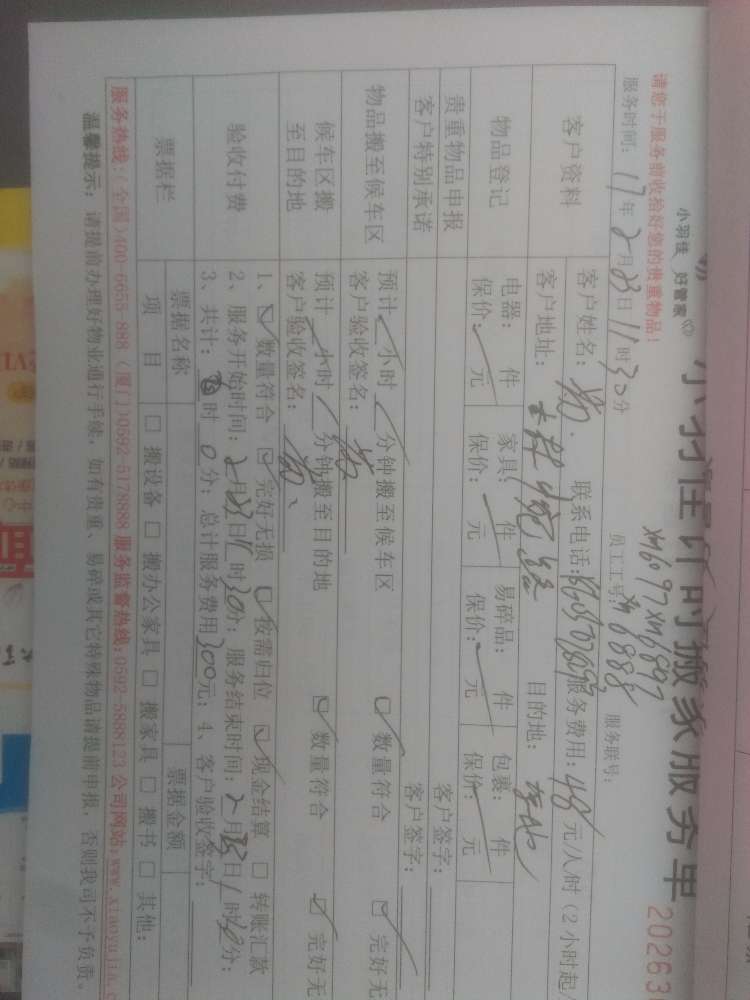 小羽佳计时搬家服务单
20263
小羽佳 好管家
请您于服务前收拾好您的贵重物品！
xm6097 xm6897
员工工号: xm6888
服务联号:
服务时间: 17年2月23日11时30分
客户资料
客户姓名:
联系电话:
服务费用: 48元/人/时（2小时起
客户地址:
目的地: 本地
物品登记
电器: 件
家具: 件
易碎品: 件
包裹: 件
保价: 元
保价: 元
保价: 元
保价: 元
贵重物品申报
客户签字:
客户特别承诺
客户签字:
物品搬至候车区
预计 小时 分钟搬至候车区
☑ 数量符合
☑ 完好无
客户验收签名:
候车区搬至目的地
预计 小时 分钟搬至目的地
☑ 数量符合
☑ 完好无
客户验收签名:
验收付费
1、☑ 数量符合 ☑ 完好无损 ☑ 按需归位 ☑ 现金结算 □ 转账汇款
2、服务开始时间: 2月23日11时30分; 服务结束时间: 2月23日1时40分;
3、共计: 时0分; 总计服务费用300元; 4、客户验收签字:
票据栏
票据名称
票据金额
项目
□ 搬设备 □ 搬办公家具 □ 搬家具 □ 搬书 □ 其他:
服务热线:(全国)400-6655-888 (厦门)0592-5178888 服务监督热线:0592-5888123 公司网站:www.xiaoyujia.c
温馨提示: 请提前办理好物业通行手续, 如有贵重、易碎或其它特殊物品请提前申报, 否则我司不予负责。